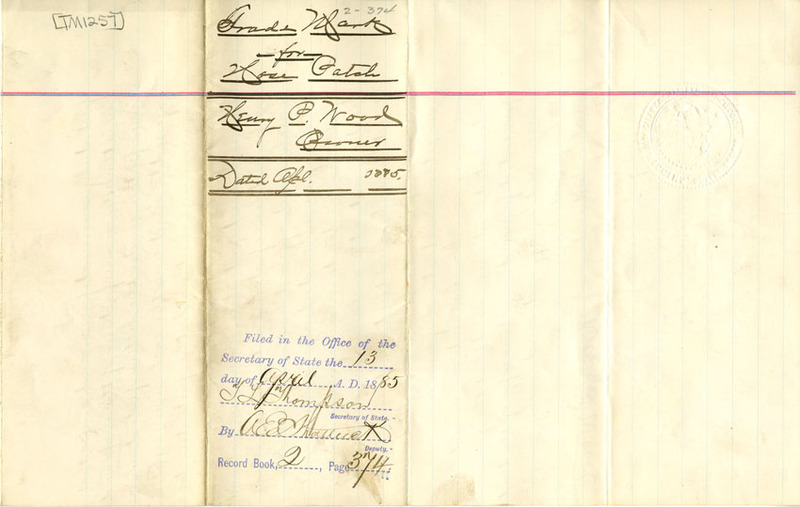 [TM1257]
2-374
Trade Mark
for
Hose Patch
Henry P. Wood
Owner
Dated Apl. 1885.
Filed in the Office of the
Secretary of State the 13
day of April A. D. 1885
T L Thompson
Secretary of State.
By
Deputy.
Record Book, 2, Page 374